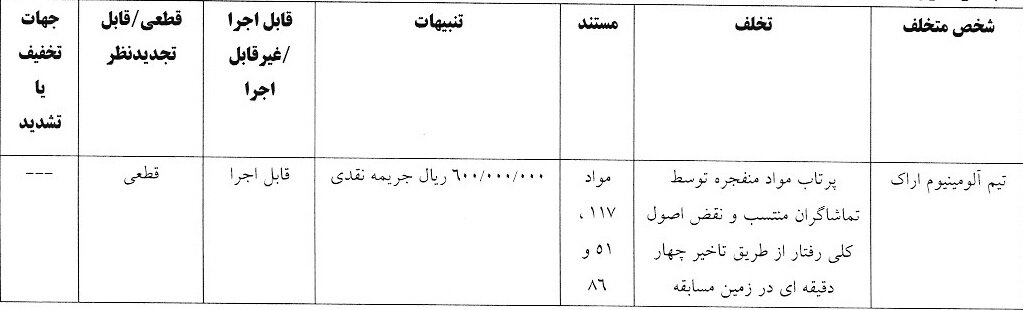 شخص متخلف
تخلف
مستند
تنبیهات
قابل اجرا
/غیرقابل
اجرا
قطعی/قابل
تجدیدنظر
جهات
تخفیف
یا
تشدید
تیم آلومینیوم اراک
پرتاب مواد منفجره توسط
تماشاگران منتسب و نقض اصول
کلی رفتار از طریق تاخیر چهار
دقیقه ای در زمین مسابقه
مواد
۱۱۷ ،
۵۱ و
۸۶
۶۰۰/۰۰۰/۰۰۰ ریال جریمه نقدی
قابل اجرا
قطعی
---